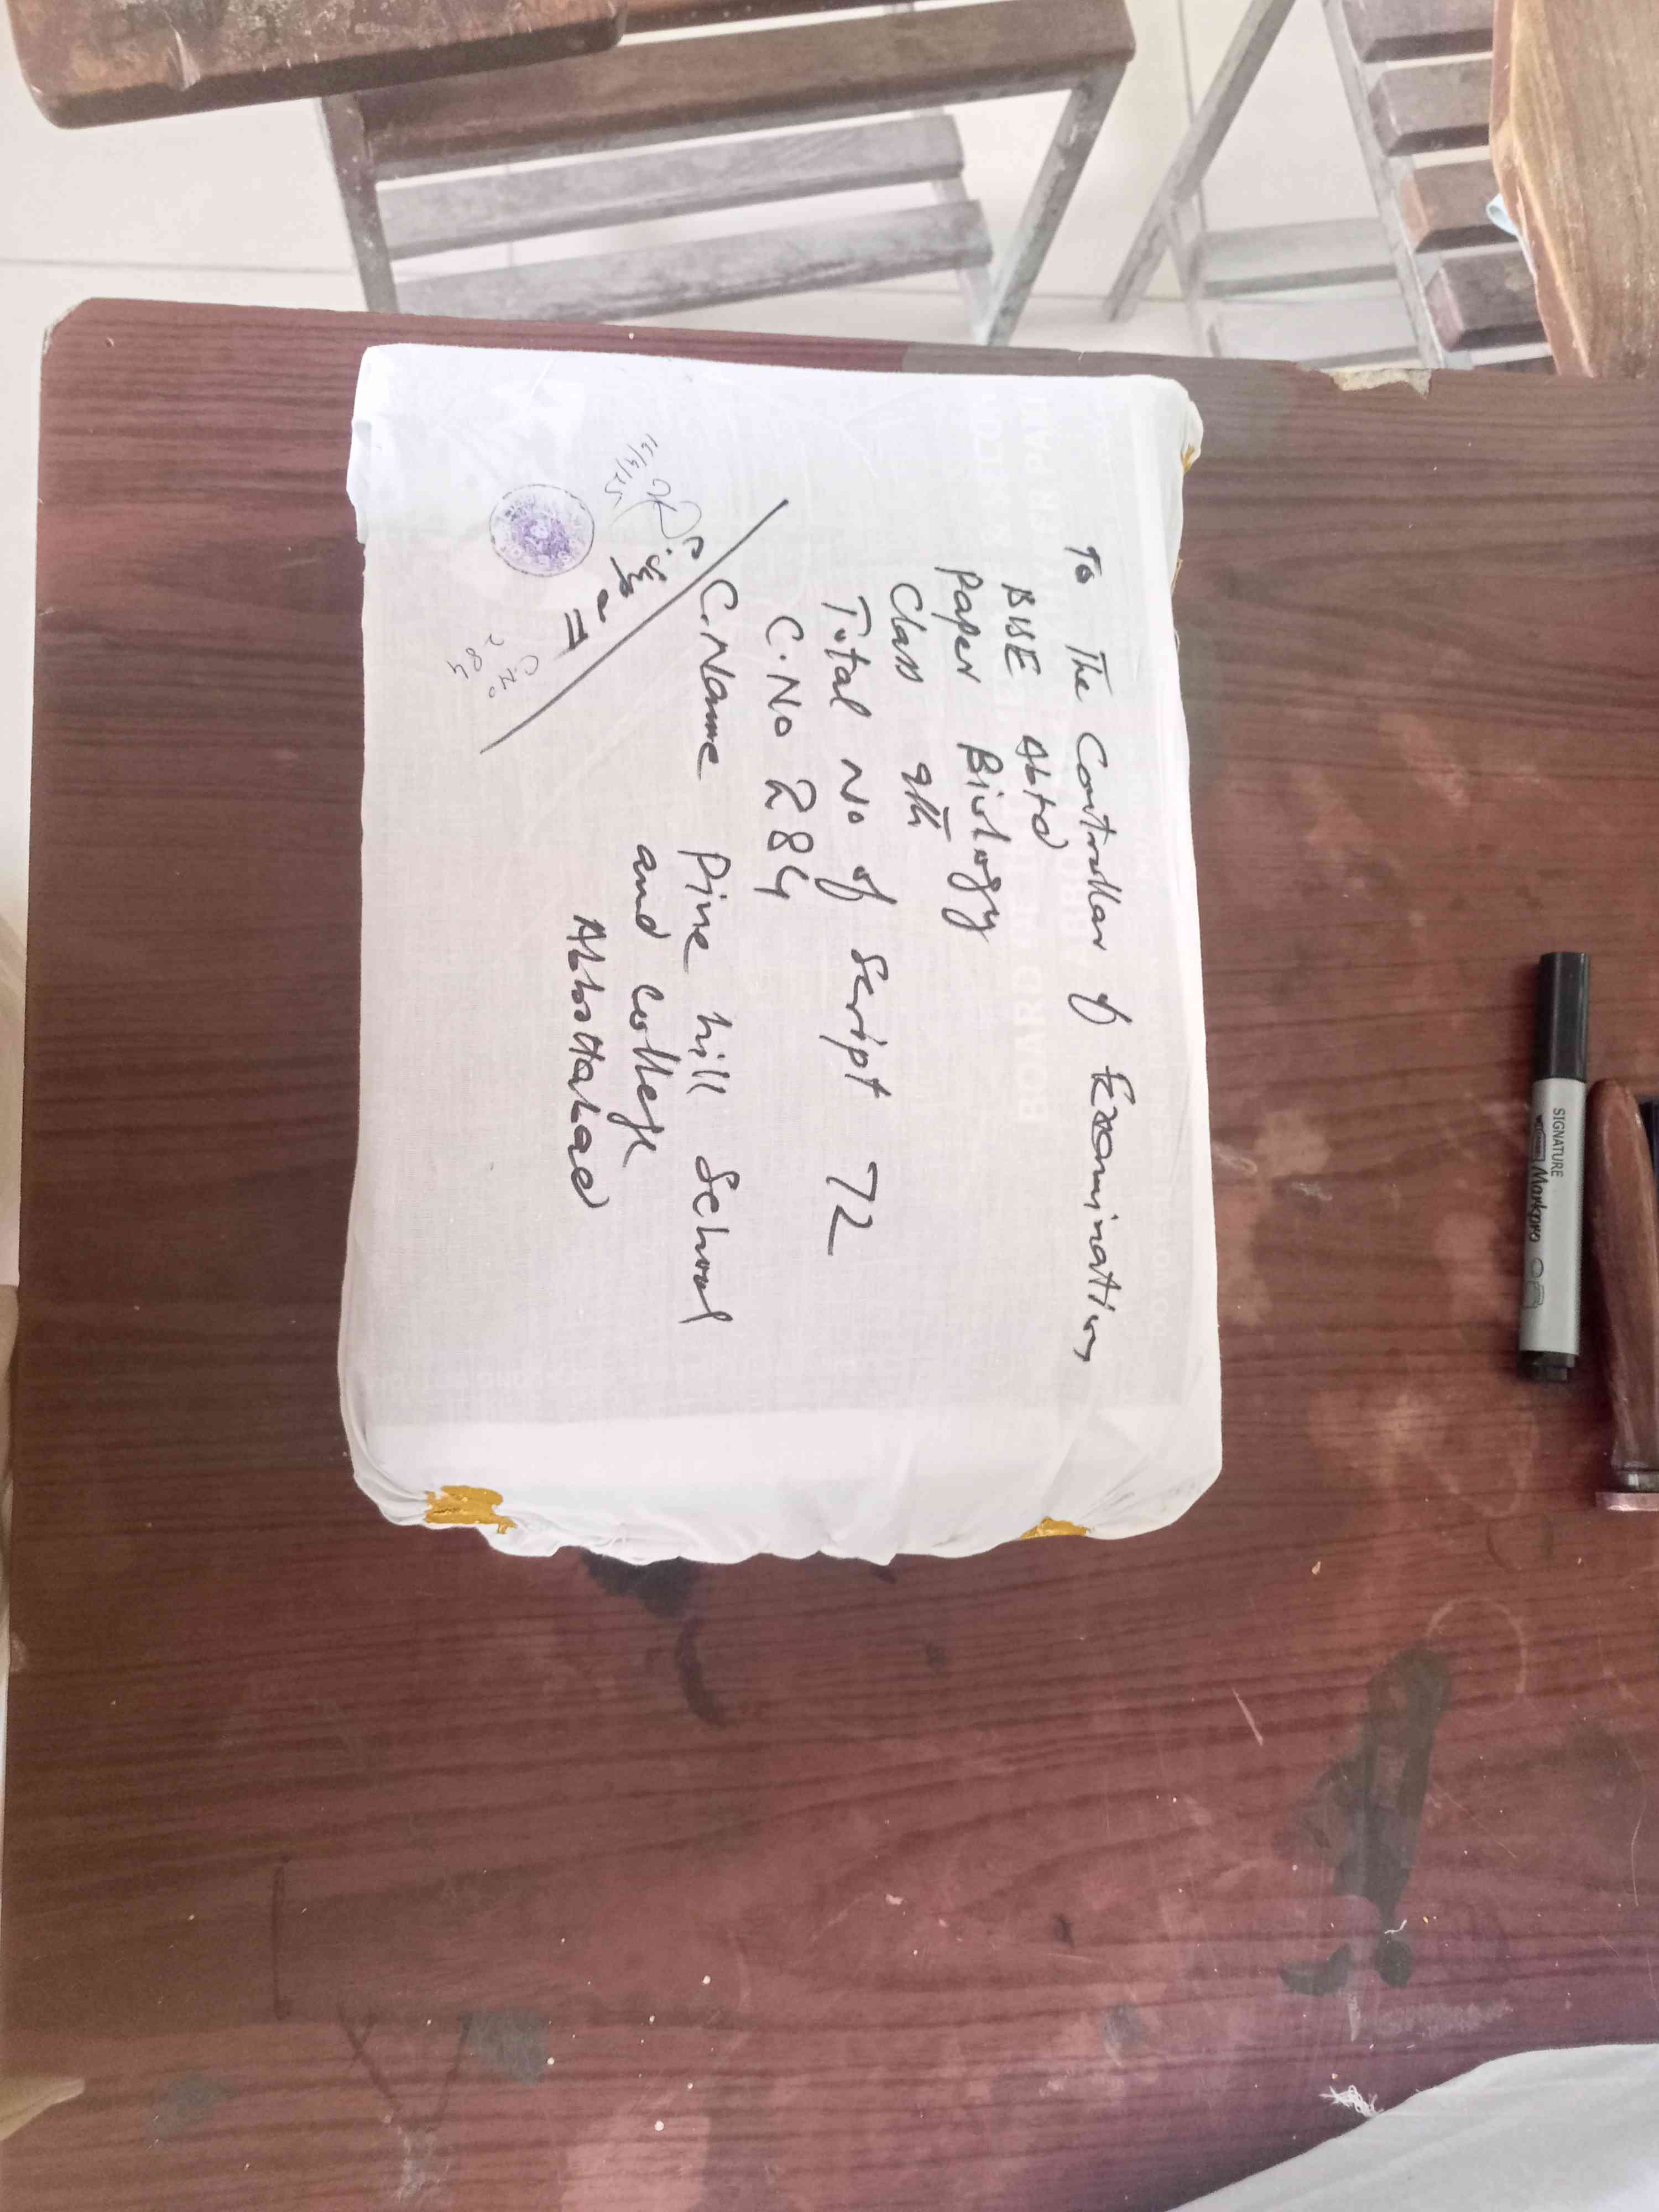 To The Controller of Examination,
BISE Abtd
Paper Biology
Class 9th
Total No of Script 72
C.No 284
C.Name Pine hill School
and college
Abbottabad
C.No
284
SIGNATURE
Markpro